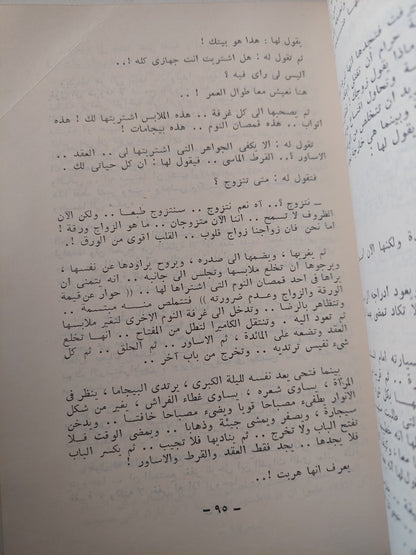 يقول لها : هذا هو بيتك !
ثم تقول له : هل اشتريت انت جهازى كله ! ..
اليس لى راى فيه ؟
هنا نعيش معا طوال العمر ! ..
ثم يصحبها الى كل غرفة .. هذه الملابس اشتريتها لك ! هذه
اثواب .. هذه قمصان النوم .. هذه بيجامات !
تقول له : الا يكفى الجواهر التى اشتريتها لى .. العقد ..
الاساور ؟ .. القرط الماسى .. فيقول لها : ان كل حياتى لك ..
فتقول له : متى نتزوج ؟
ــ نتزوج ؟ .. آه نعم نتزوج .. سنتزوج طبعا .. ولكن الآن
الظروف لا تسمح .. اننا الآن متزوجان .. ما هو الزواج ورقة !
اما نحن فان زواجنا زواج قلوب .. القلب اقوى من الورق ! ..
ثم يقربها ، ويضمها الى صدره .. ويروح يراودها عن نفسها ،
ويرجوها ان تخلع ملابسها وتجلس الى جانبه .. انه يتمنى ان
يراها فى احد قمصان النوم التى اشتراها لها .. (( حوار عن قيمة
الورقة والزواج وعدم ضرورته )) فتتملص منه مبتسمة ..
وتتظاهر بالرضا .. وتدخل الى غرفة النوم الاخرى لتغير ملابسها
ثم تعود اليه .. وتنتقل الكاميرا لتطل من المفتاح .. انها تخلع
العقد وتضعه على المائدة ، ثم الاساور .. ثم الحلق .. ثم كل
شىء نفيس ترتديه .. وتخرج من باب آخر ..
بينما فتحى يعد نفسه لليلة الكبرى ، يرتدى البيجاما ، ينظر فى
المرآة ، يساوى شعره ، يساوى غطاء الفراش ، يغير من شكل
الانوار يطفىء مصباحا قويا ويضىء مصباحا خافتا .. ويدخن
سيجارة ، ويصفر ويمشى جيئة وذهابا .. ويمضى الوقت فـلا
تفتح الباب ولا تخرج .. ثم يناديها فلا تجيب .. ثم يكسر الباب
فلا يجدها .. يجد فقط العقد والقرط والاساور !
يعرف انها هربت ! ..
ــ ٩٥ ــ